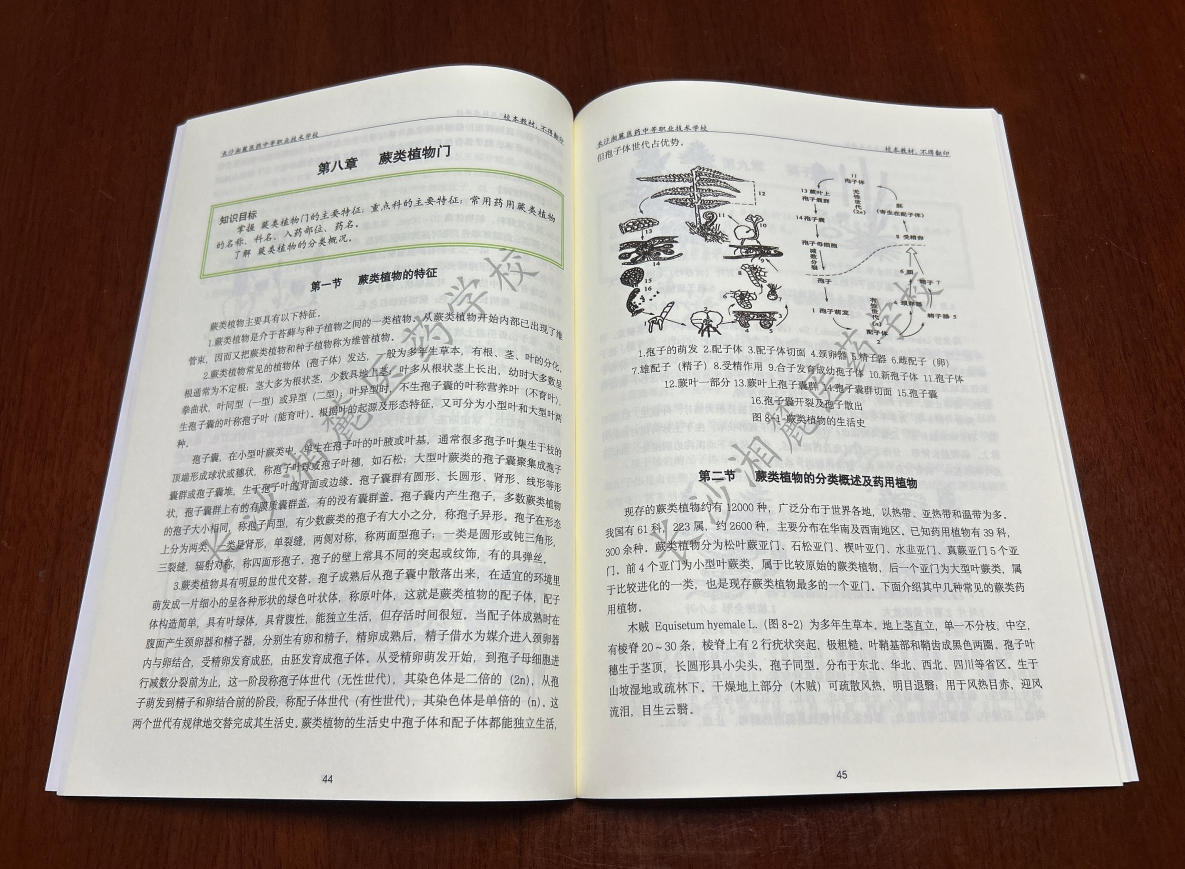 长沙湘麓医药中等职业技术学校
校本教材,不得翻印
第八章 蕨类植物门
知识目标
掌握 蕨类植物门的主要特征;重点科的主要特征;常用药用蕨类植物
的名称、科名、入药部位、药名。
了解 蕨类植物的分类概况。
第一节 蕨类植物的特征
蕨类植物主要具有以下特征。
1.蕨类植物是介于苔藓与种子植物之间的一类植物。从蕨类植物开始内部已出现了维
管束,因而又把蕨类植物和种子植物称为维管植物。
2.蕨类植物常见的植物体(孢子体)发达,一般为多年生草本,有根、茎、叶的分化,
根通常为不定根;茎大多为根状茎,少数具地上茎;叶多从根状茎上长出,幼时大多数呈
拳曲状,叶同型(一型)或异型(二型),叶异型时,不生孢子囊的叶称营养叶(不育叶),
生孢子囊的叶称孢子叶(能育叶)。根据叶的起源及形态特征,又可分为小型叶和大型叶两
种。
孢子囊,在小型叶蕨类中,单生在孢子叶的叶腋或叶基,通常很多孢子叶集生于枝的
顶端形成球状或穗状,称孢子叶球或孢子叶穗,如石松;大型叶蕨类的孢子囊聚集成孢子
囊群或孢子囊堆,生于孢子叶的背面或边缘。孢子囊群有圆形、长圆形、肾形、线形等形
状,孢子囊群上有的有膜质囊群盖,有的没有囊群盖。孢子囊内产生孢子,多数蕨类植物
的孢子大小相同,称孢子同型,有少数蕨类的孢子有大小之分,称孢子异型。孢子在形态
上分为两类,一类是肾形,单裂缝,两侧对称,称两面型孢子;一类是圆形或钝三角形,
三裂缝,辐射对称,称四面形孢子,孢子的壁上常具不同的突起或纹饰,有的具弹丝。
3.蕨类植物具有明显的世代交替。孢子成熟后从孢子囊中散落出来,在适宜的环境里
萌发成一片细小的呈各种形状的绿色叶状体,称原叶体,这就是蕨类植物的配子体,配子
体构造简单,具有叶绿体,具背腹性,能独立生活,但存活时间很短。当配子体成熟时在
腹面产生颈卵器和精子器,分别生有卵和精子,精卵成熟后,精子借水为媒介进入颈卵器
内与卵结合,受精卵发育成胚,由胚发育成孢子体。从受精卵萌发开始,到孢子母细胞进
行减数分裂前为止,这一阶段称孢子体世代(无性世代),其染色体是二倍的(2n),从孢
子萌发到精子和卵结合前的阶段,称配子体世代(有性世代),其染色体是单倍的(n)。这
两个世代有规律地交替完成其生活史。蕨类植物的生活史中孢子体和配子体都能独立生活,
44
长沙湘麓医药中等职业技术学校
校本教材,不得翻印
但孢子体世代占优势。
12
11
10
13
14
9
15
16
8
7
6
1
2
3
4
5
11
孢子体
13 蕨叶上
孢子囊群
无性世代(2n)
胚
(寄生在配子体)
14孢子囊
9 受精卵
孢子母细胞
减数分裂
孢子
6 卵
精子 7
1 孢子萌发
有性世代(n)
4 颈卵器
精子器 5
配子体
2
1.孢子的萌发 2.配子体 3.配子体切面 4.颈卵器 5.精子器 6.雌配子(卵)
7.雄配子(精子)8.受精作用 9.合子发育成幼孢子体 10.新孢子体 11.孢子体
12.蕨叶一部分 13.蕨叶上孢子囊群 14.孢子囊群切面 15.孢子囊
16.孢子囊开裂及孢子散出
图 8-1 蕨类植物的生活史
第二节 蕨类植物的分类概述及药用植物
现存的蕨类植物约有 12000 种,广泛分布于世界各地,以热带、亚热带和温带为多。
我国有 61 科,223 属,约 2600 种,主要分布在华南及西南地区。已知药用植物有 39 科,
300 余种。蕨类植物分为松叶蕨亚门、石松亚门、楔叶亚门、水韭亚门、真蕨亚门 5 个亚
门。前 4 个亚门为小型叶蕨类,属于比较原始的蕨类植物,后一个亚门为大型叶蕨类,属
于比较进化的一类,也是现存蕨类植物最多的一个亚门。下面介绍其中几种常见的蕨类药
用植物。
木贼 Equisetum hyemale L.(图 8-2)为多年生草本。地上茎直立,单一不分枝,中空,
有棱脊 20~30 条,棱脊上有 2 行疣状突起,极粗糙。叶鞘基部和鞘齿成黑色两圈。孢子叶
穗生于茎顶,长圆形具小尖头,孢子同型。分布于东北、华北、西北、四川等省区。生于
山坡湿地或疏林下。干燥地上部分(木贼)可疏散风热,明目退翳;用于风热目赤,迎风
流泪,目生云翳。
45
长沙湘麓医药学校
长沙湘麓医药学校